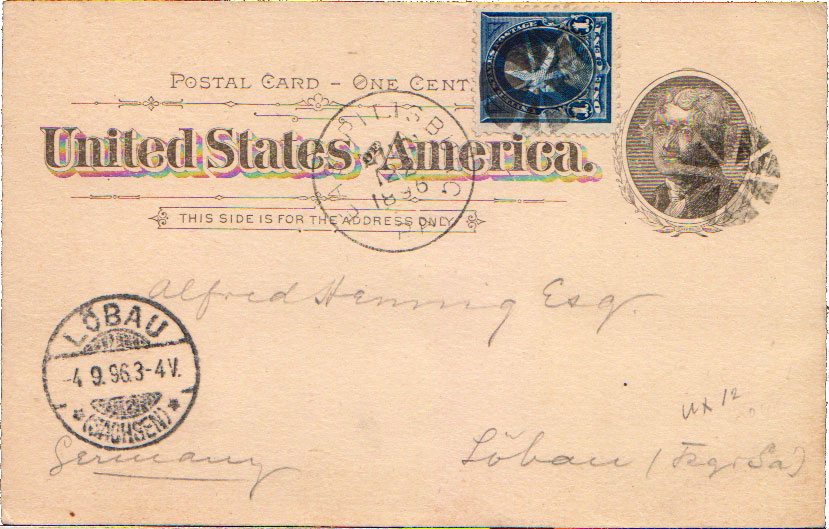 POSTAL CARD – ONE CENT
United States of America.
THIS SIDE IS FOR THE ADDRESS ONLY
U.S. POSTAGE
1
1
LÖBAU
-4 9.96.3-4V.
(SACHSEN)
Alfred Hennig Esq.
UX 12
Löbau
Germany